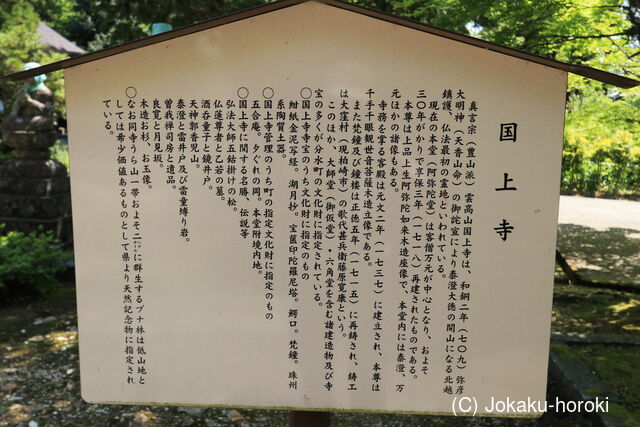 国上寺
真言宗（豊山派）雲高山国上寺は、和銅二年（七〇九）弥彦
大明神（天香山命）の御託宣により泰澄大徳の開山になる北越
鎮護、仏法最初の霊地といわれている。
現在の本堂（阿弥陀堂）は客僧万元が中心となり、およそ
三〇年がかりで享保三年（一七一八）再建されたものである。
本尊は上品上生阿弥陀如来木造座像で、本堂内には泰澄、万
元ほかの諸像もある。
寺務を掌る客殿は元文二年（一七三七）に建立され、本尊は
千手千眼観世音菩薩木造立像である。
また梵鐘及び鐘楼は正徳五年（一七一五）に再鋳され、鋳工
は大窪村（現柏崎市）の歌代甚兵衛藤原寛康という。
このほか、大師堂（御仮堂）・六角堂を含む諸建造物及び寺
宝の多くが分水町の文化財に指定されている。
〇国上寺寺宝のうち文化財に指定のもの
紺紙金泥写経。湖月抄。宝篋印陀羅尼塔。鰐口。梵鐘。珠州
系陶質土器。
〇国上寺管理のうち町の指定文化財に指定のもの
五合庵。夕ぐれの岡。本堂附境内地。
〇国上寺に関する名勝、伝説等
弘法大師五鈷掛けの松。
仏蓮尊者と乙若の墓。
酒呑童子と鏡井戸。
天神郭香児山。
泰澄と雷井戸及び雷童縛り岩。
曽我禅司房と遺品。
良寛と月見坂。
木造お杉、お玉像。
〇なお同寺うら山一帯およそ二㌶に群生するブナ林は低山地と
しては希少価値あるものとして県より天然記念物に指定され
ている。
(C) Jokaku-horoki